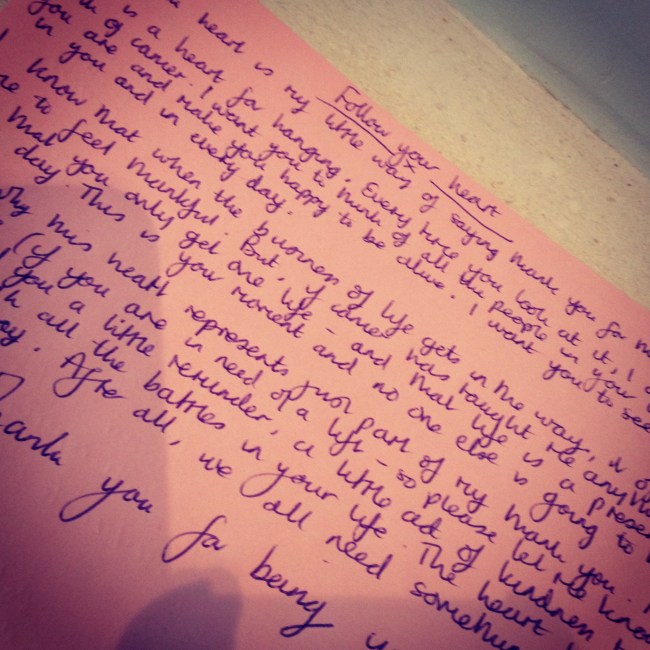 Follow your heart
x
heart is my little way of saying thank you for
is a heart for hanging. Every time you look at it, I
of cancer. I want you to think of all the people in your
you are in and make you happy to be alive. I want you to see
in you and in every day.
I know that when the business of life gets in the way, it
me to feel thankful. But if cancer has taught me anything
that you only get one life - and that life is a present
day. This is your moment and no one else is going to
Why this heart represents just part of my thank you.
(if you are in need of a lift - so please let me know
you a little reminder, a little act of kindness
all the battles in your life. The heart
After all, we all need something
Thank you for being